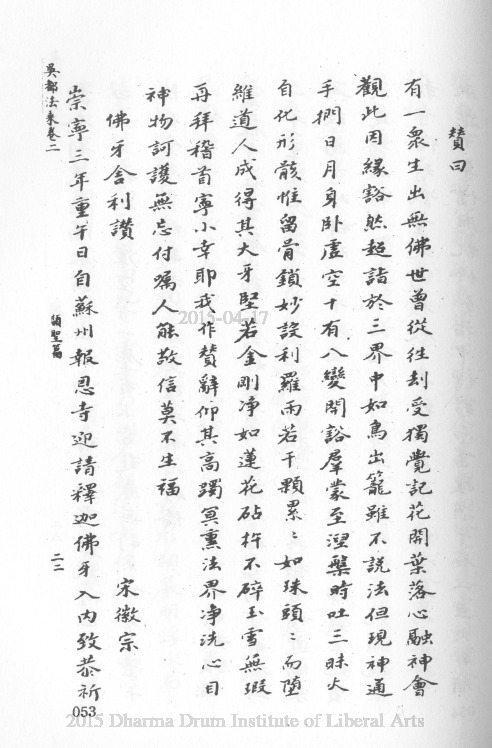 贊曰
有一衆生出無佛世曾從往刦受獨覺記花開葉落心融神會
觀此因緣豁然超詣於三界中如鳥出籠雖不説法但現神通
手捫日月身卧虛空十有八變開豁羣蒙至涅槃時吐三昧火
自化形骸惟留骨鎖妙設利羅雨若干顆累〻如珠頭〻而墮
維道人成得其大牙堅若金剛淨如蓮花砧杵不碎玉雪無瑕
再拜稽首寧小幸耶我作贊辭仰其高躅冥熏法界淨洗心目
神物訶護無忘付囑人能敬信莫不生福
佛牙舍利讚
宋徽宗
崇寧三年重午日自蘇州報恩寺迎請釋迦佛牙入内致恭祈
吳都法乘卷二
頌聖篇
二二
053
2015-04-17
2015 Dharma Drum Institute of Liberal Arts